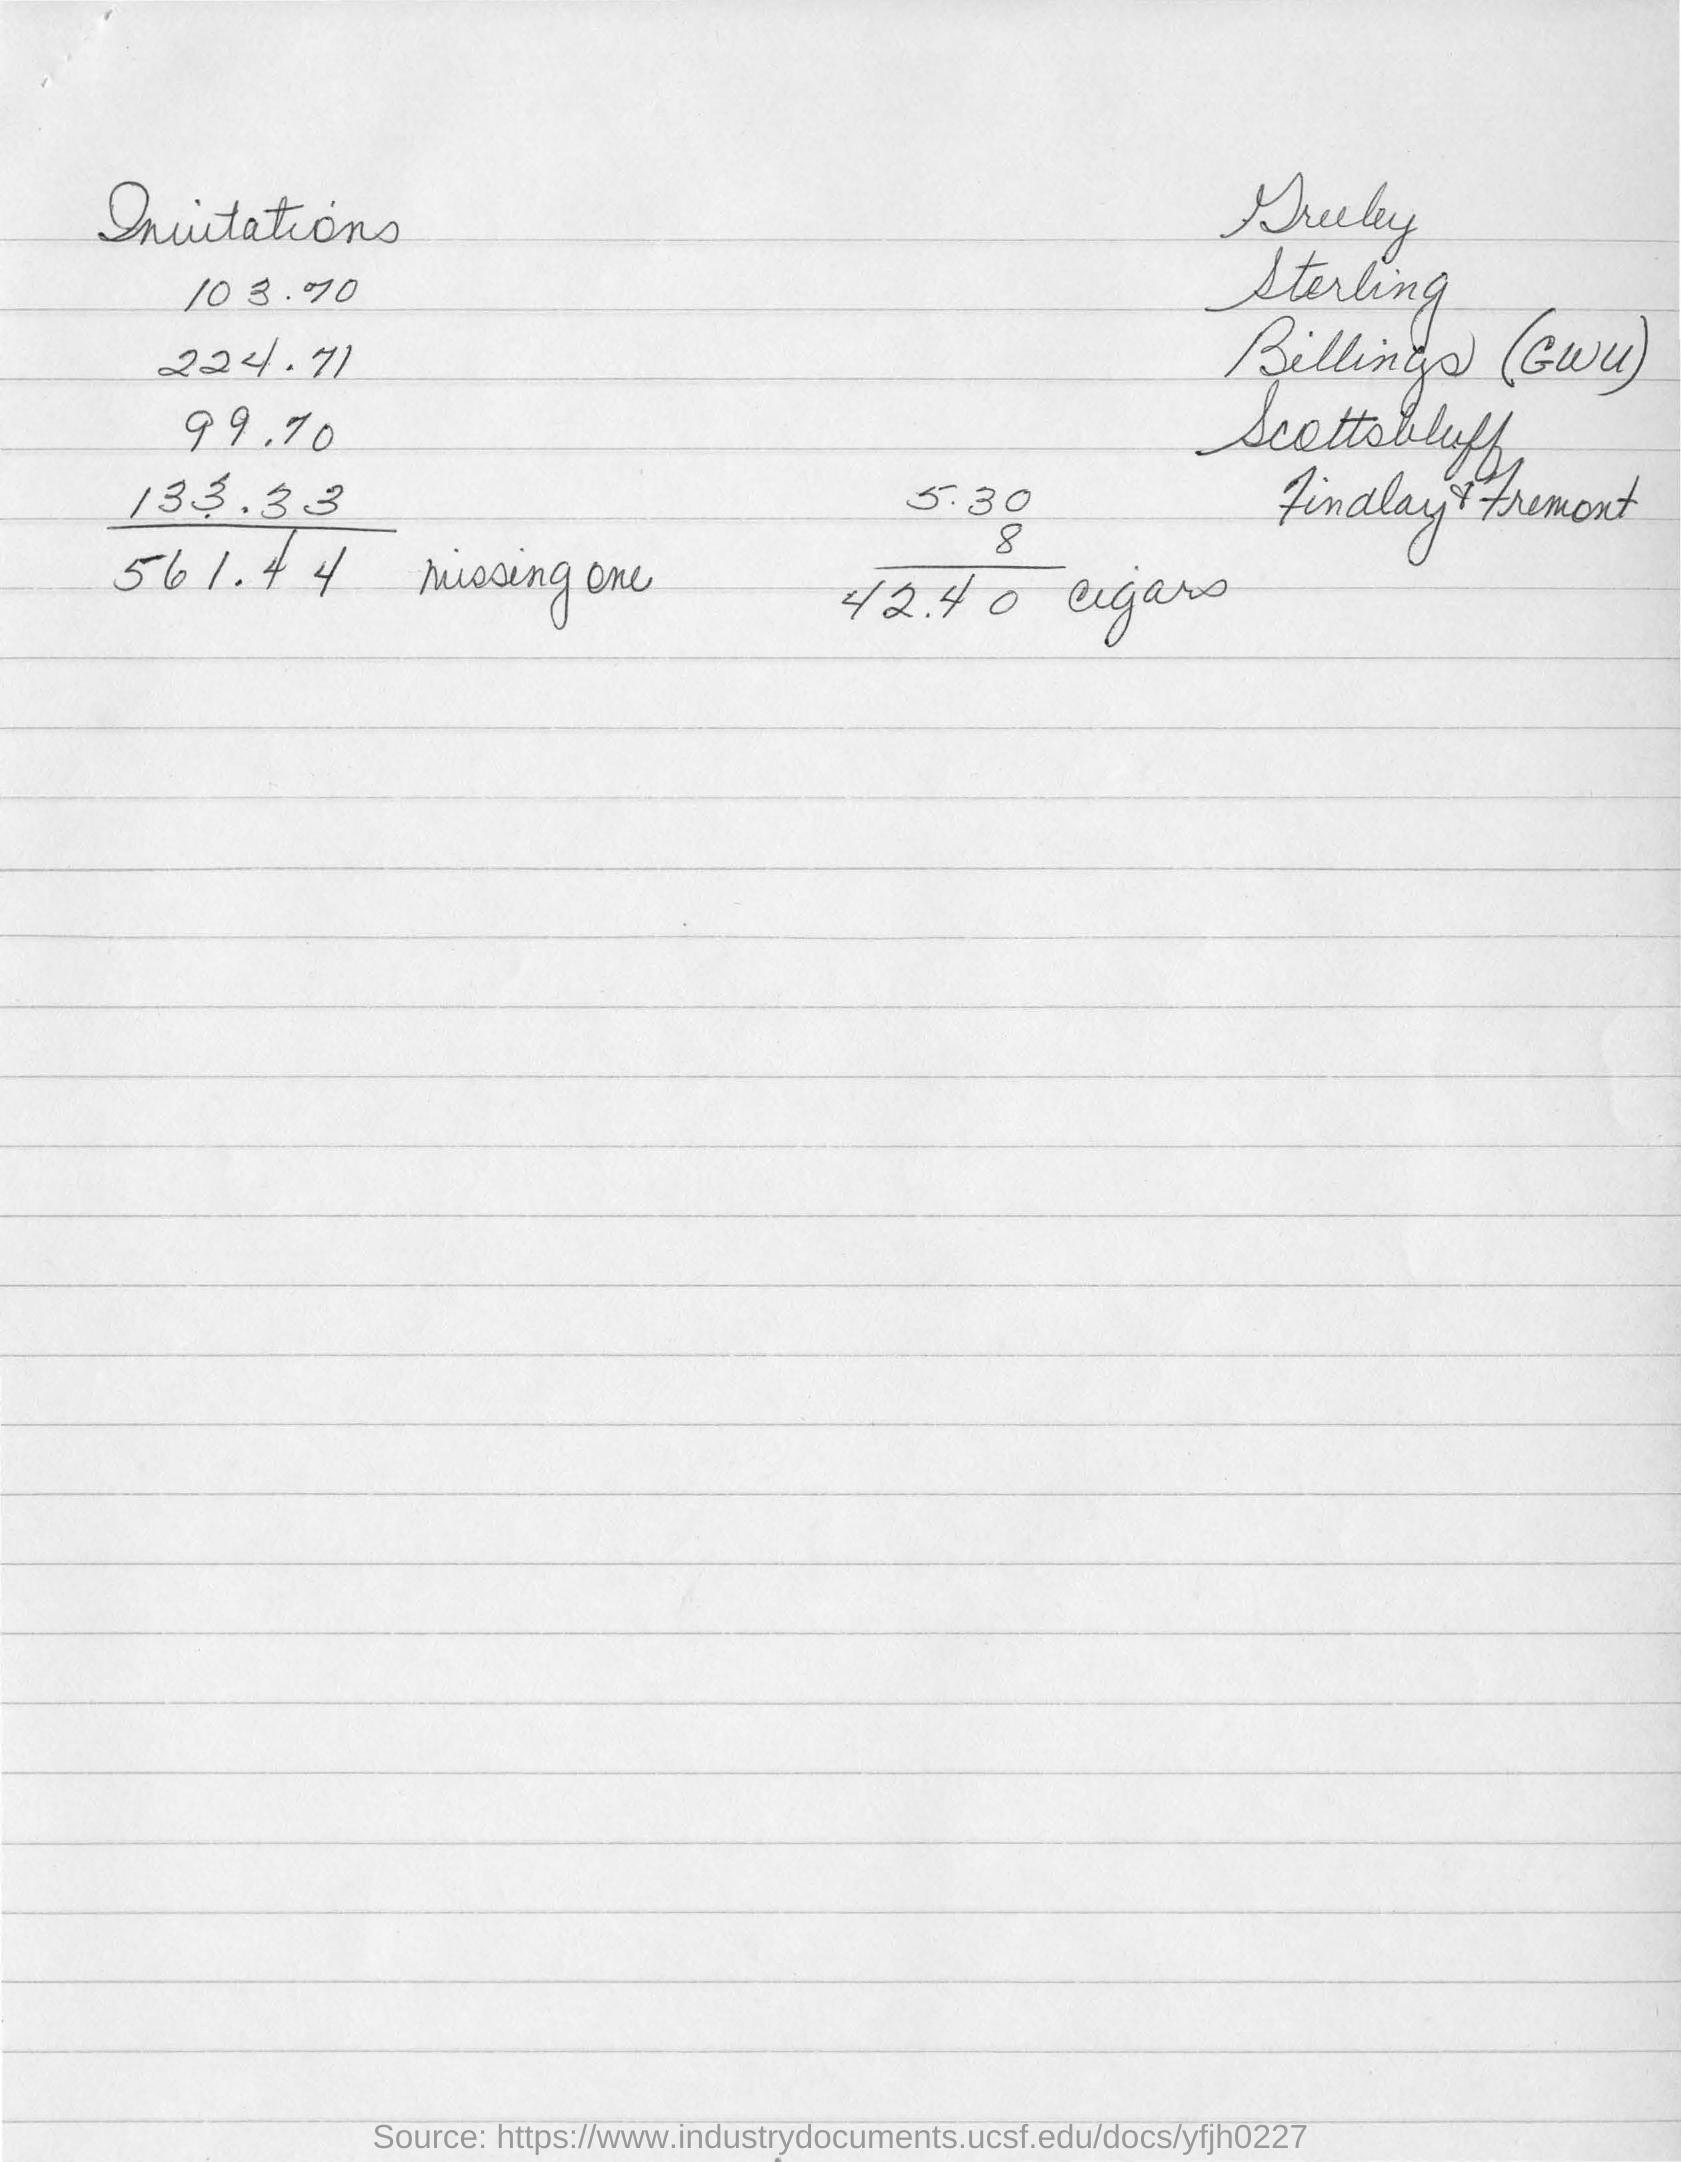 Invitations
103.70
224.71
99.70
133.33
561.44 missing one
5.30
8
42.40 cigars
Greeley
Sterling
Billings (GWU)
Scottsbluff
Findlay & Fremont
Source: https://www.industrydocuments.ucsf.edu/docs/yfjh0227